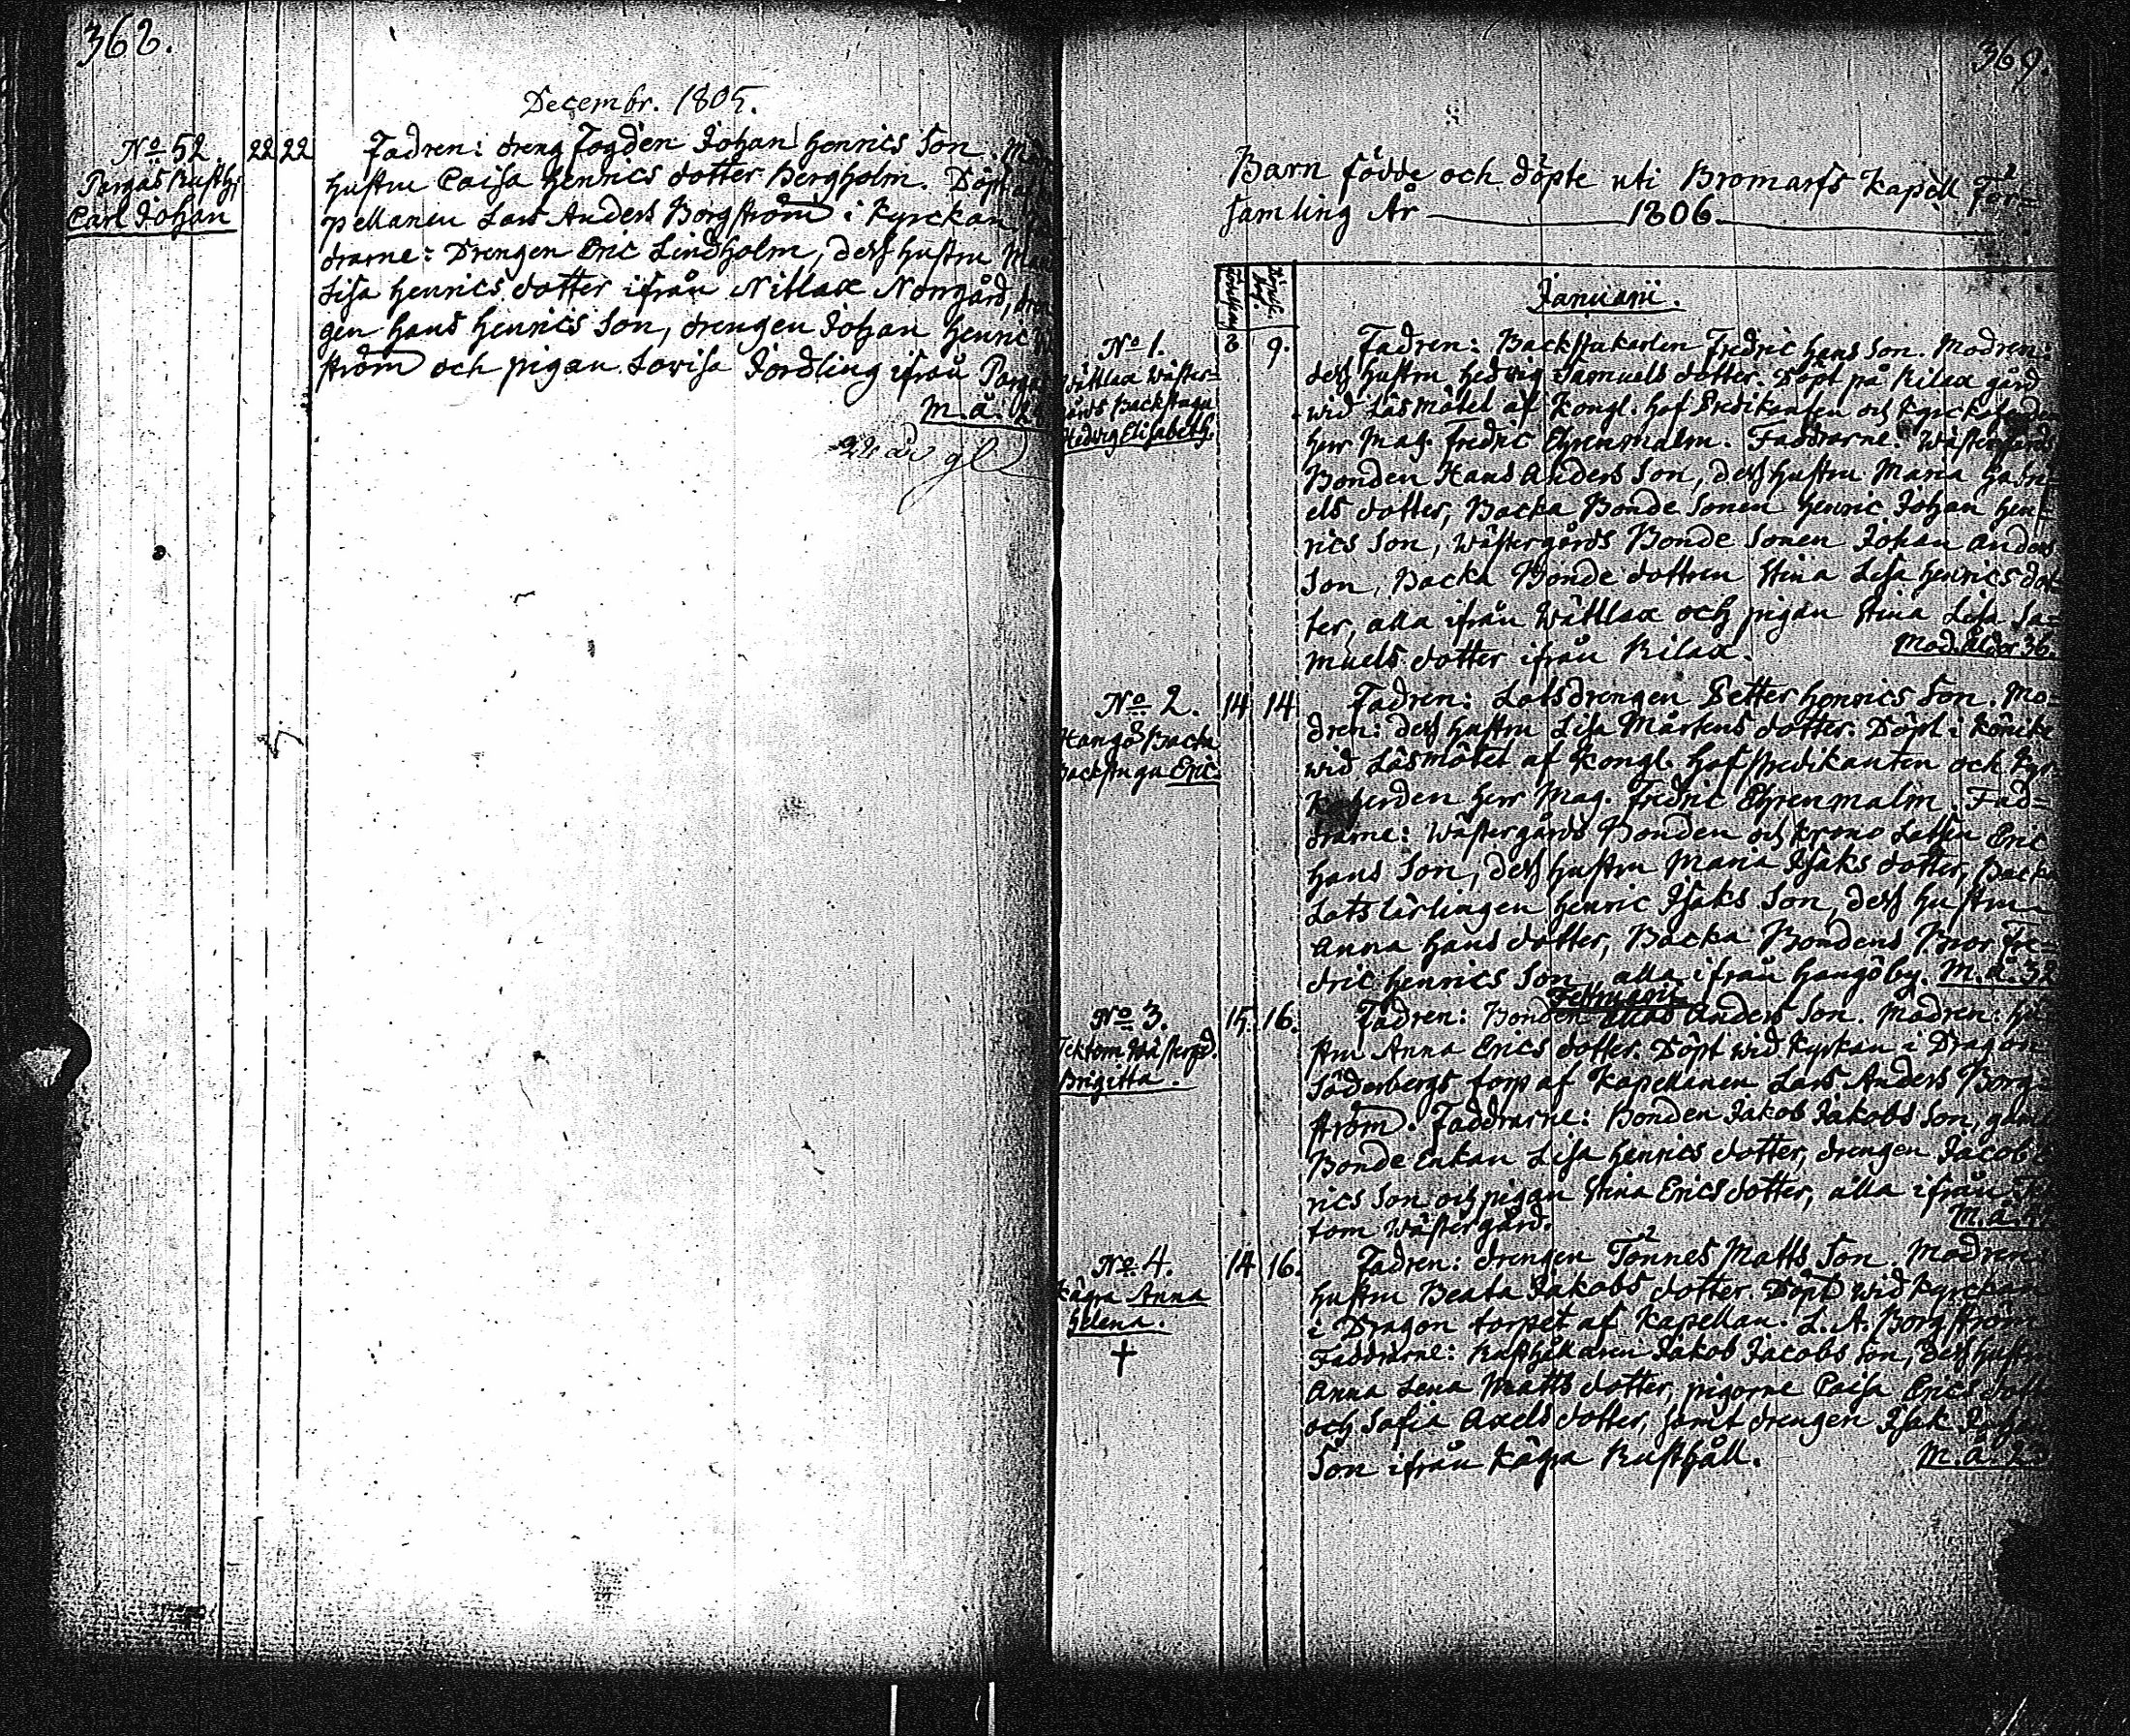 368.
Decembr. 1805.
No 52. 22 22
Pargas Rusth.
Carl Johan
Fadren: dreng Fogden Johan Henrics Son.
hustru Caisa Henrics dotter Bergholm. Döpt af
pellanen Lars Anders Borgström i Kyrckan.
drarne: Drengen Eric Lindholm, dess hustru
Lisa Henrics dotter ifrån Nitlax Norrgård,
gen Hans Henrics Son, drengen Johan Henric
ström och pigan Lovisa Jordling ifrån
M. å.
369.
Barn födde och döpte uti Bromarfs Kapell För-
samling År 1806.
Januarii.
No 1. 8 9.
Wättlax Wäster-
gårds Backstugu
Hedvig Elisabeth.
Fadren: Backstukarlen Fredric Hans Son. Modren:
dess hustru Hedvig Samuels dotter. Döpt på Rilax gård
wid Läsmötet af Kongl. Hof Predikanten och Kyrckoherden
Herr Mag. Fredric Ehrenmalm. Faddrarne: Wästergårds
Bonden Hans Anders Son, dess hustru Maria Gabri-
els dotter, Backa Bonde Sonen Henric Johan Hen-
rics Son, Wästergårds Bonde Sonen Johan Anders
Son, Backa Bonde dottren Stina Lisa Henrics dot-
ter, alla ifrån Wättlax och pigan Stina Lisa Sa-
muels dotter ifrån Rilax. Mod. Ålder 36.
No 2. 14 14
Hangö Backa
Backstugu Eric.
Fadren: Lotsdrengen Petter Henrics Son. Mo-
dren: dess hustru Lisa Mårtens dotter. Döpt i
wid Läsmötet af Kongl. Hof Predikanten och Kyr-
koherden Herr Mag. Fredric Ehrenmalm. Fad-
drarne: Wästergårds Bonden och Krono Lotsen Eric
Hans Son, dess hustru Maria Isaks dotter, Backa
Lotslärlingen Henric Isaks Son, dess hustru
Anna Hans dotter, Backa Bondens Bror Fre-
dric Henrics Son, alla ifrån Hangöby. M. å. 32
Februarii
No 3. 15. 16.
Tecktom Wästergd.
Brigitta.
Fadren: Bonden Anders Son. Modren: hu-
stru Anna Erics dotter. Döpt wid Kyrkan i Dragon
Söderbergs torp af Kapellanen Lars Anders Borg-
ström. Faddrarne: Bonden Jakob Jakobs Son,
Bonde Enkan Lisa Henrics dotter, drengen Jacob
rics Son och pigan Stina Erics dotter, alla ifrån
tom Wästergård. M. å.
No 4. 14 16.
Kågra Anna
Helena.
†
Fadren: drengen Tönnes Matts Son. Modren
hustru Beata Jakobs dotter. Döpt wid Kyrckan
i Dragon torpet af Kapellan. L. A. Borgström
Faddrarne: Rusthållaren Jakob Jacobs Son, dess hustru
Anna Lena Matts dotter, pigorne Caisa Erics dotter
och Sofia Axels dotter, samt drengen Isak
Son ifrån Kågra Rusthåll. M. å.